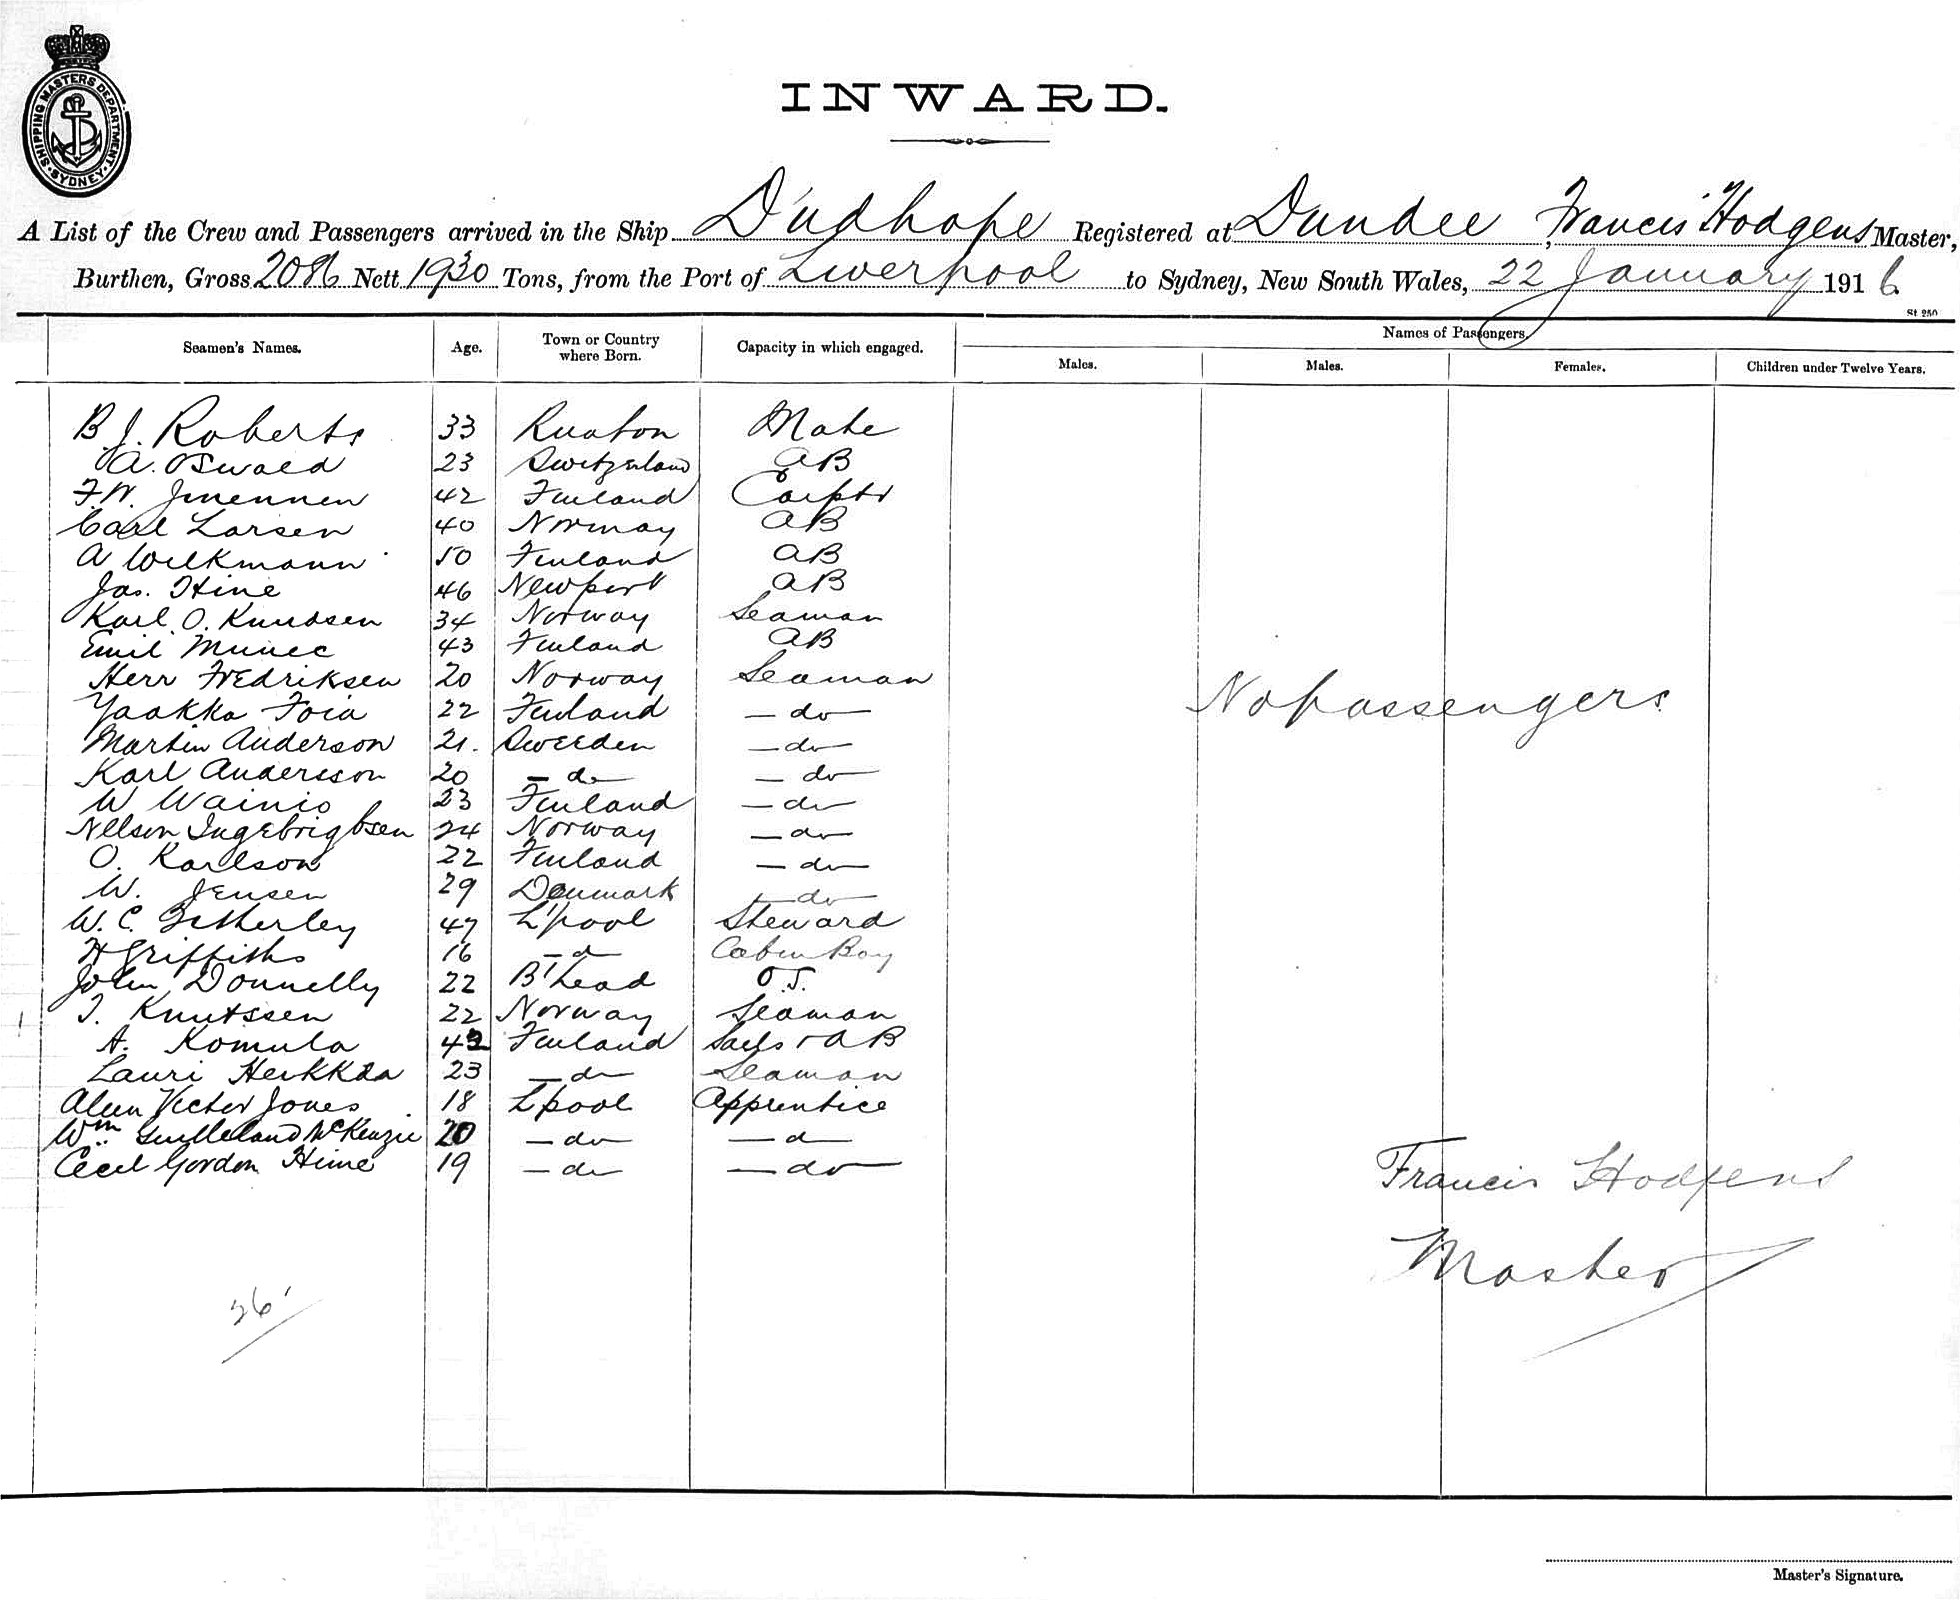 SHIPPING MASTERS DEPARTMENT
SYDNEY
INWARD.
A List of the Crew and Passengers arrived in the Ship Dudhope Registered at Dundee, Francis Hodgens Master,
Burthen, Gross 2086 Nett 1930 Tons, from the Port of Liverpool to Sydney, New South Wales, 22 January 1916
St 250
Seamen's Names. Age. Town or Country where Born. Capacity in which engaged. Names of Passengers.
Males. Males. Females. Children under Twelve Years.
B J. Roberts 33 Ruabon Mate
A. Oswald 23 Switzerland AB
F.W. 42 Finland Carptr
Carl Larsen 40 Norway AB
A Wilkmann 50 Finland AB
Jas. Hine 46 Newport AB
Karl O. Knudsen 34 Norway Seaman
Emil 43 Finland AB
Herr Fredriksen 20 Norway Seaman
Yaakko Toia 22 Finland - do -
Martin Anderson 21. Sweeden - do -
Karl Andersson 20 - do - - do -
W Wainio 23 Finland - do -
Nelson Ingebrigtsen 24 Norway - do -
O. Karlson 22 Finland - do -
W. Jensen 29 Denmark - do -
W. C. 47 L'pool Steward
H Griffiths 16 - d - Cabin Boy
John Donnelly 22 B'head O.S.
T. Knutssen 22 Norway Seaman
A. Komula 42 Finland Sails + AB
Lauri 23 - do - Seaman
Alun Victor Jones 18 L'pool Apprentice
Wm McKenzie 20 - do - - d -
Cecil Gordon Hime 19 - do - - do -
No passengers
Francis Hodgens
Master
26
Master's Signature.